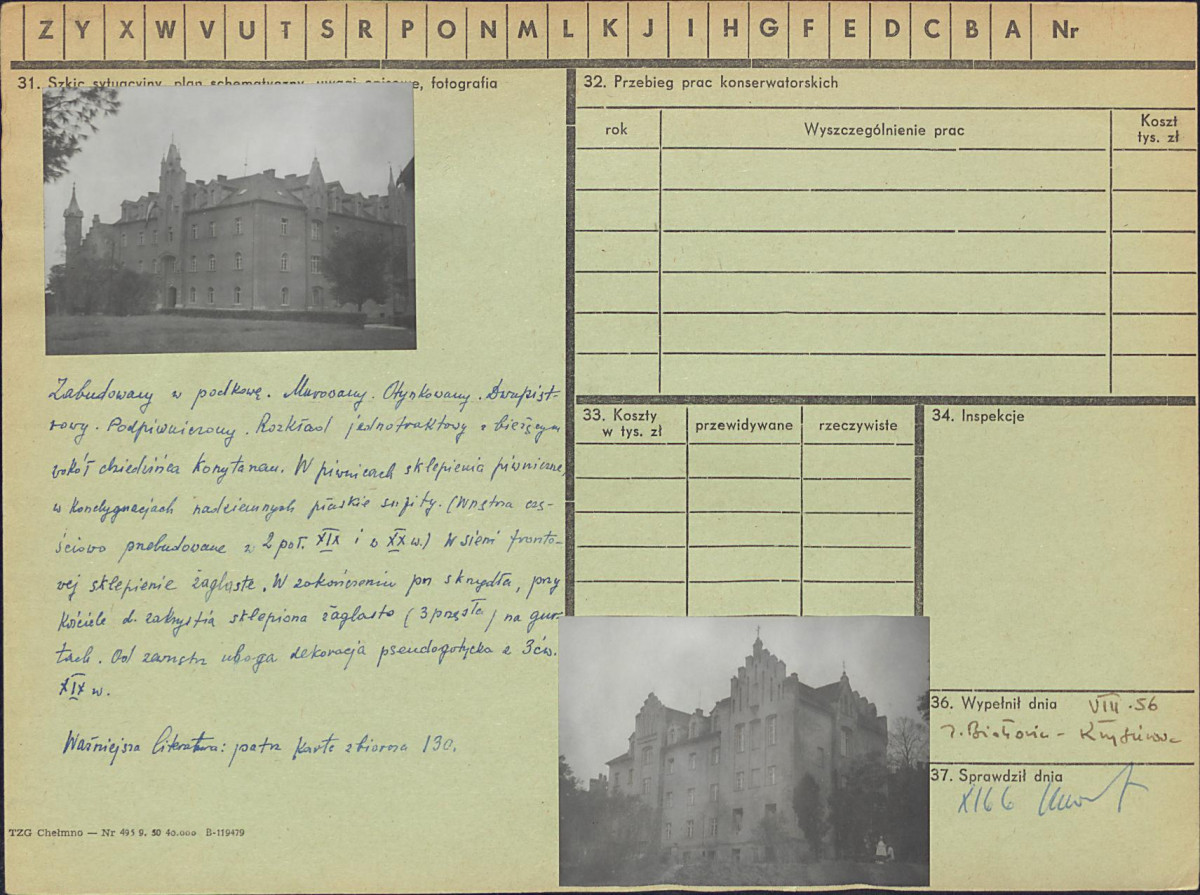 Z Y X W V U T S R P O N M L K J I H G F E D C B A Nr
31. Szkic sytuacyjny, plan schematyczny, uwagi opisowe, fotografia
Zabudowany w podkowę. Murowany. Otynkowany. Dwupięt-
rowy. Podpiwniczony. Rozkład jednotraktowy z bieżącym
wokół dziedzińca korytarzem. W piwnicach sklepienia piwniczne,
w kondygnacjach nadziemnych płaskie sufity. (Wnętrza czę-
ściowo przebudowane w 2 poł. XIX i w XX w.) W sieni fronto-
wej sklepienie żaglaste. W zakończeniu pn skrzydła, przy
kościele d. zakrystia sklepiona żaglasto (3 przęsła) na gur-
tach. Od zewnątrz uboga dekoracja pseudogotycka z 3 ćw.
XIX w.
Ważniejsza literatura: patrz karta zbiorcza 130.
TZG Chełmno — Nr 495 9. 50 40.000 B-119479
32. Przebieg prac konserwatorskich
rok
Wyszczególnienie prac
Koszt
tys. zł
33. Koszty
w tys. zł
przewidywane
rzeczywiste
34. Inspekcje
36. Wypełnił dnia VIII.56
37. Sprawdził dnia
XI66